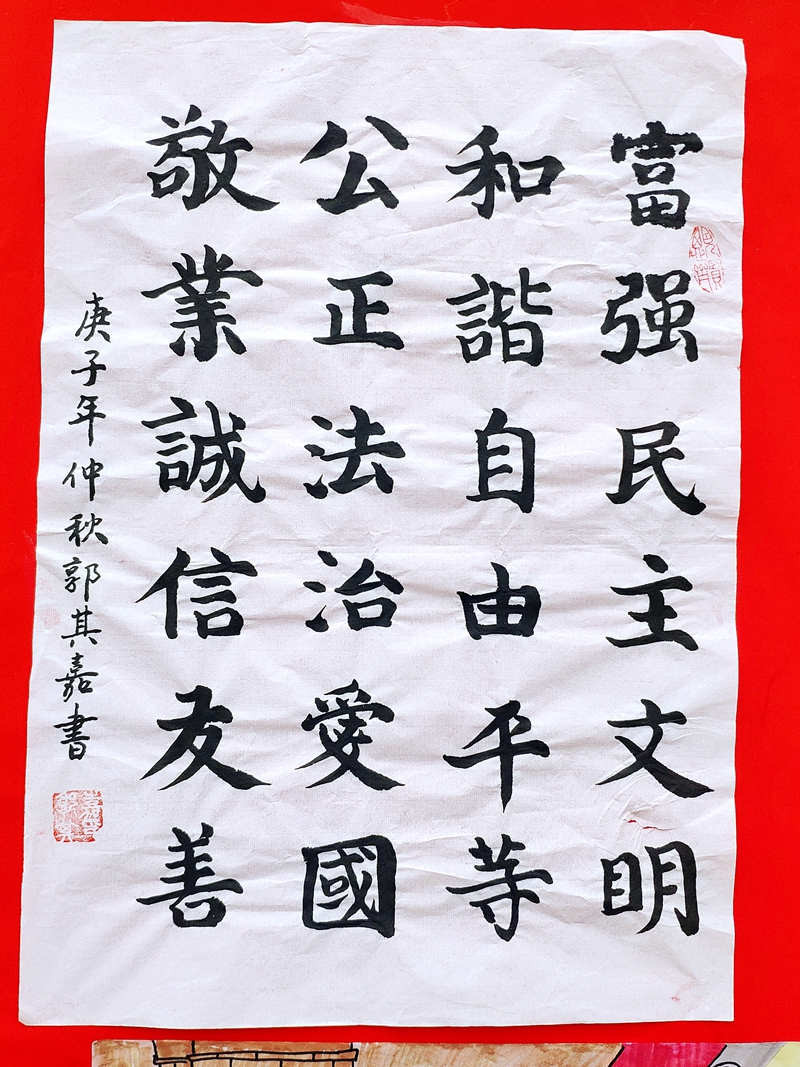 富强民主文明
和諧自由平等
公正法治愛國
敬業誠信友善
庚子年仲秋郭其嘉書